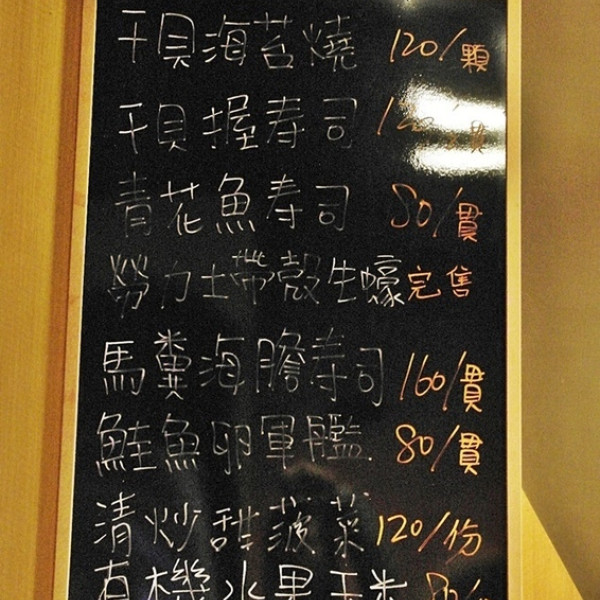 干貝海苔燒 120/顆
干貝握寿司
青花魚寿司 80/貫
勞力士帶殼生蠔完售
馬糞海膽寿司 160/貫
鮭魚卵軍艦 80/貫
清炒甜菠菜 120/份
有機水果玉米